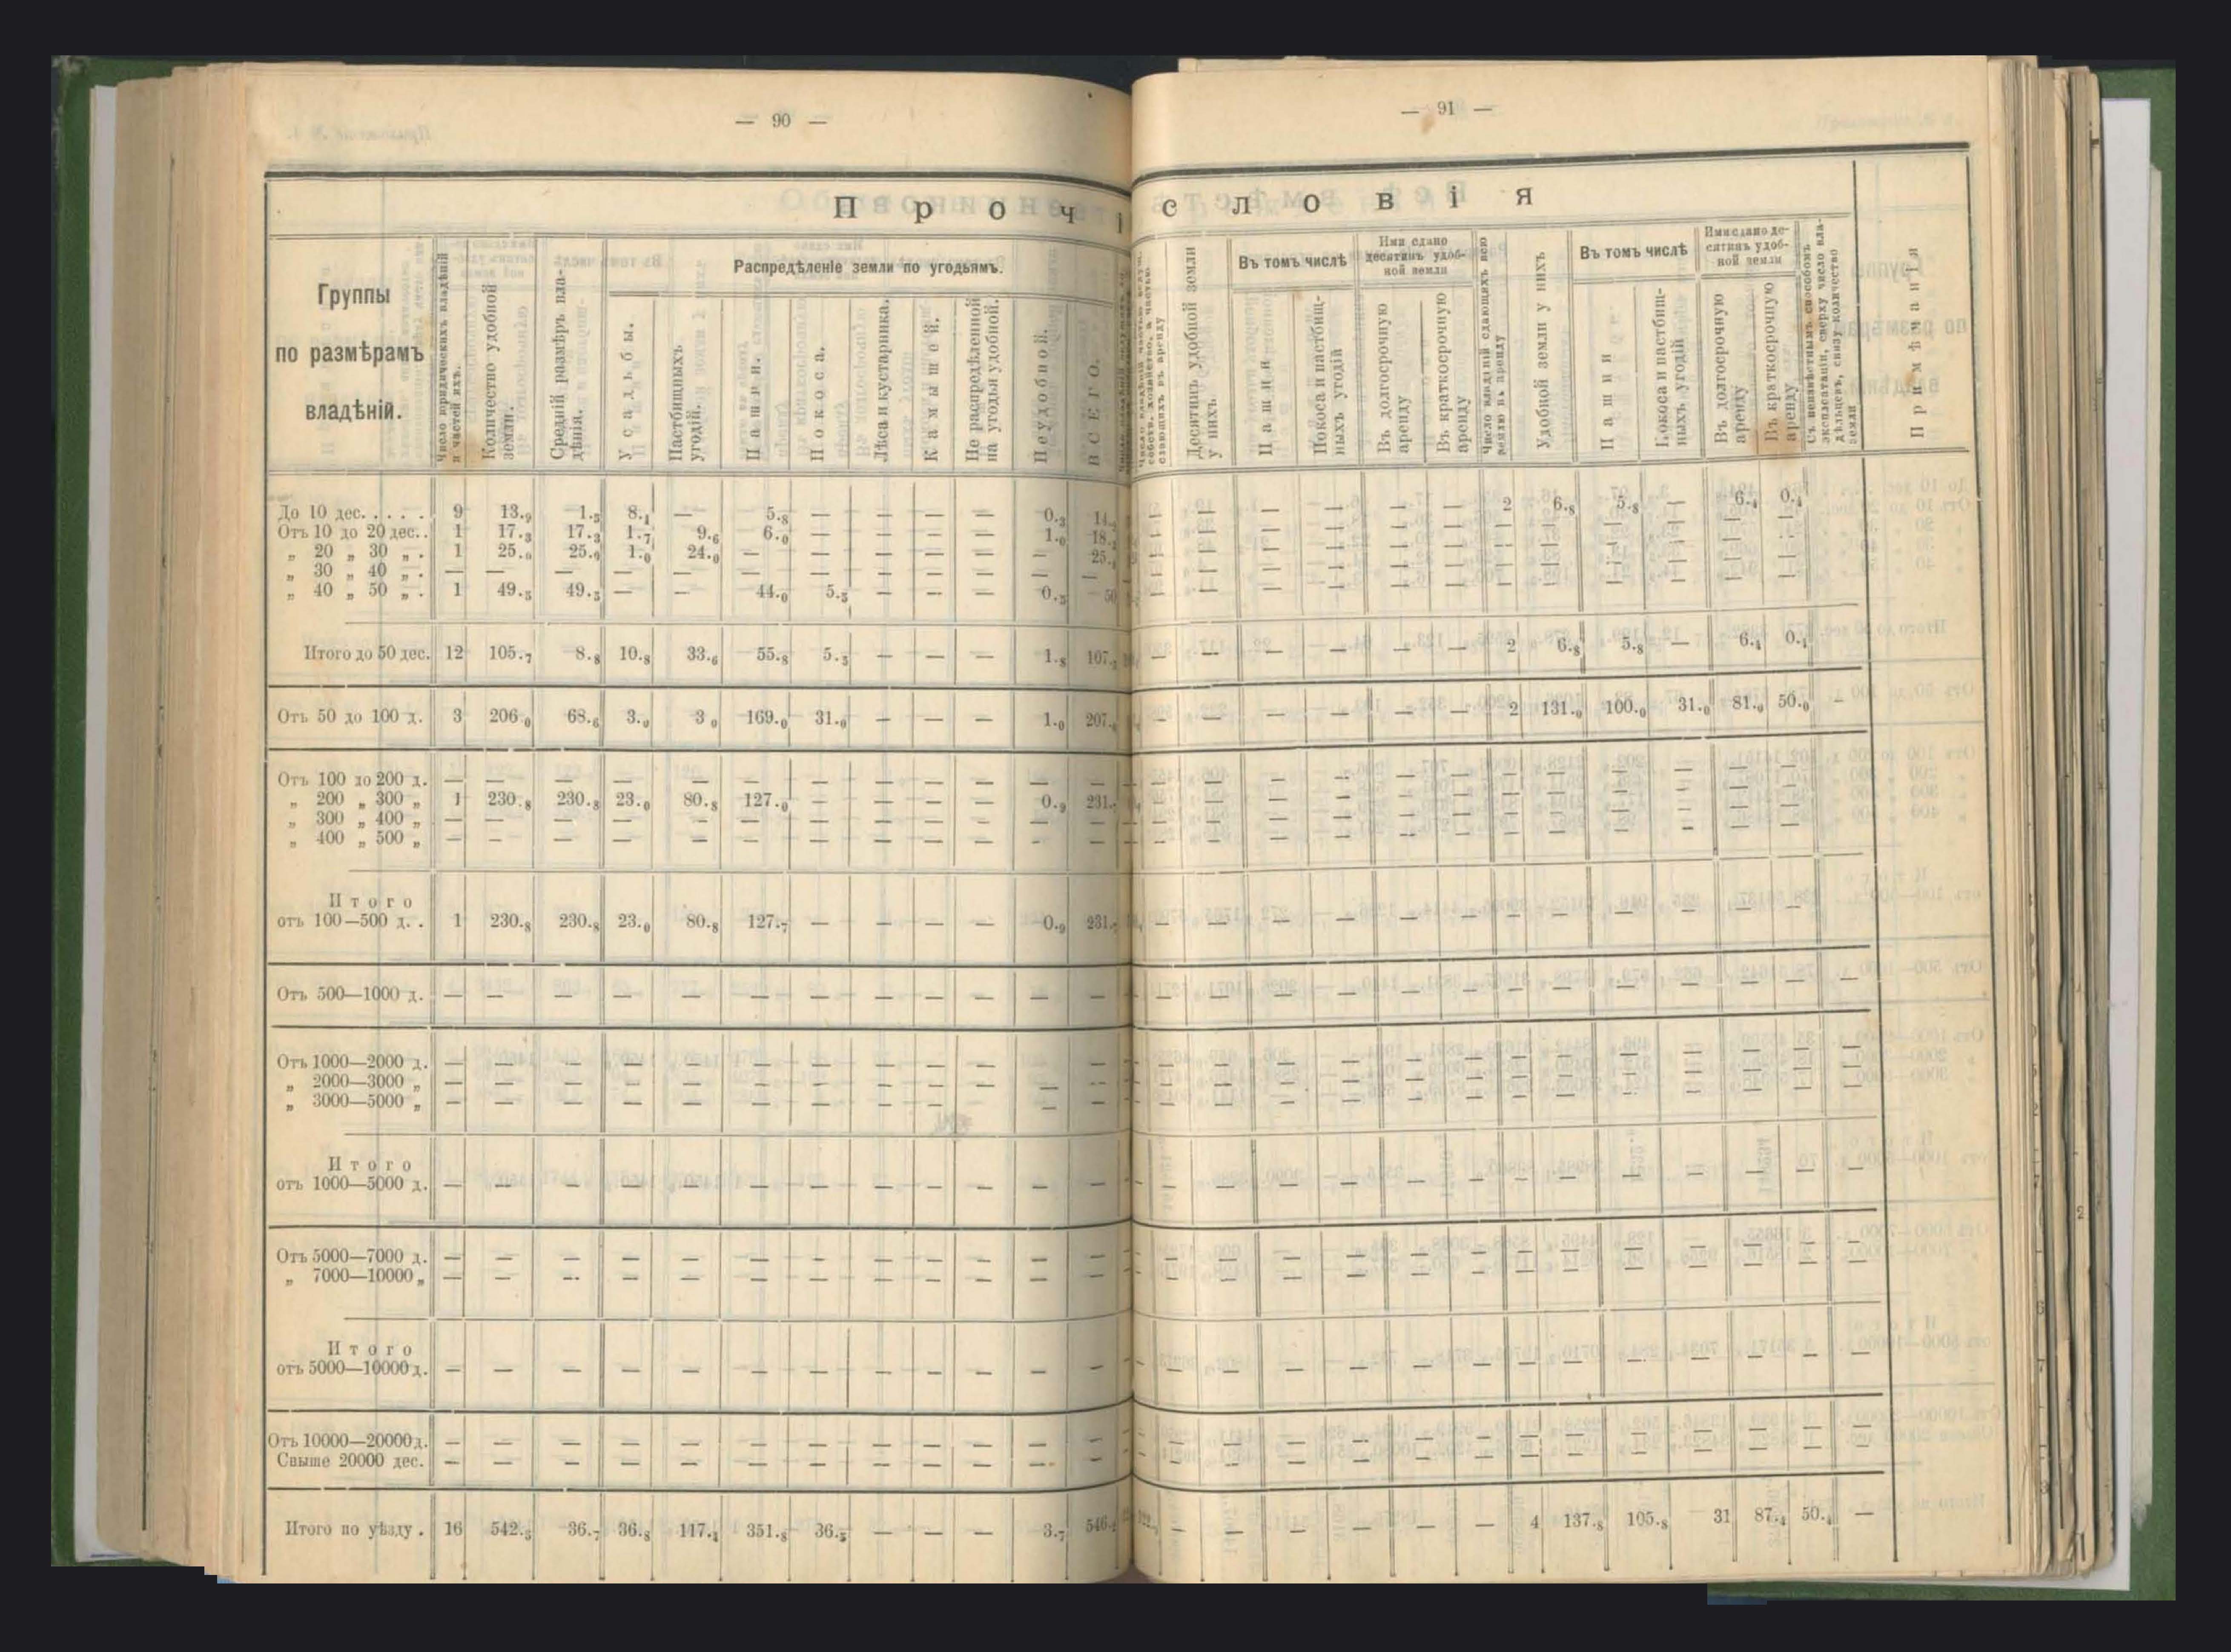 — 90 —
П р о ч
Группы
по размѣрамъ
владѣній.
Число юридическихъ владѣній
и частей ихъ.
Количество удобной
земли.
Средній размѣръ вла-
дѣнія.
Распредѣленіе земли по угодьямъ.
Усадьбы.
Пастбищныхъ
угодій.
Пашни.
Покоса.
Лѣса и кустарника.
Камышей.
Не распредѣленной
на угодья удобной.
Неудобной.
ВСЕГО.
До 10 дес. . . . . 9 13.9 1.5 8.1 — 5.8 — — — — 0.3
Отъ 10 до 20 дес. . 1 17.3 17.3 1.7 9.6 6.0 — — — — 1.0
„ 20 „ 30 „ . 1 25.0 25.0 1.0 24.0 — — — — — —
„ 30 „ 40 „ . — — — — — — — — — — — —
„ 40 „ 50 „ . 1 49.5 49.5 — — 44.0 5.5 — — — 0.5
Итого до 50 дес. 12 105.7 8.8 10.8 33.6 55.8 5.5 — — — 1.8 107.
Отъ 50 до 100 д. 3 206 0 68.6 3.0 3 0 169.0 31.0 — — — 1.0 207.
Отъ 100 до 200 д. — — — — — — — — — — — —
„ 200 „ 300 „ 1 230.8 230.8 23.0 80.8 127.0 — — — — 0.9 231.
„ 300 „ 400 „ — — — — — — — — — — — —
„ 400 „ 500 „ — — — — — — — — — — — —
Итого
отъ 100—500 д. . 1 230.8 230.8 23.0 80.8 127.7 — — — — 0.9 231.
Отъ 500—1000 д. — — — — — — — — — — — —
Отъ 1000—2000 д. — — — — — — — — — — — —
„ 2000—3000 „ — — — — — — — — — — — —
„ 3000—5000 „ — — — — — — — — — — — —
Итого
отъ 1000—5000 д. — — — — — — — — — — — —
Отъ 5000—7000 д. — — — — — — — — — — — —
„ 7000—10000 „ — — — — — — — — — — — —
Итого
отъ 5000—10000 д. — — — — — — — — — — — —
Отъ 10000—20000 д. — — — — — — — — — — — —
Свыше 20000 дес. — — — — — — — — — — — —
Итого по уѣзду . 16 542.5 36.7 36.8 117.4 351.8 36.5 — — — 3.7 546.
— 91 —
с л о в і я
Десятинъ удобной земли
у нихъ.
Въ томъ числѣ
Пашни
Покоса и пастбищ-
ныхъ угодій
Ими сдано
десятинъ удоб-
ной земли
Въ долгосрочную
аренду
Въ краткосрочную
аренду
Число владѣній сдающихъ всю
землю въ аренду
Удобной земли у нихъ
Въ томъ числѣ
Пашни
Покоса и пастбищ-
ныхъ угодій
Ими сдано де-
сятинъ удоб-
ной земли
Въ долгосрочную
аренду
Въ краткосрочную
аренду
Съ неизвѣстнымъ способомъ
эксплоатаціи, сверху число вла-
дѣльцевъ, снизу количество
земли
Примѣчанія
— — — — — — 2 6.8 5.8 — 6.4 0.4
— — — — — — — — — — — —
— — — — — — — — — — — —
— — — — — — — — — — — —
— — — — — — — — — — — —
— — — — — — 2 6.8 5.8 — 6.4 0.4
— — — — — — 2 131.0 100.0 31.0 81.0 50.0 —
— — — — — — — — — — — —
— — — — — — — — — — — —
— — — — — — — — — — — —
— — — — — — — — — — — —
— — — — — — — — — — — —
— — — — — — — — — — — — —
— — — — — — — — — — — — —
— — — — — — — — — — — — —
— — — — — — — — — — — — —
— — — — — — — — — — — — —
— — — — — — — — — — — — —
— — — — — — — — — — — — —
— — — — — — — — — — — — —
— — — — — — — — — — — — —
— — — — — — — — — — — — —
— — — — — — 4 137.8 105.8 31 87.4 50.4 —